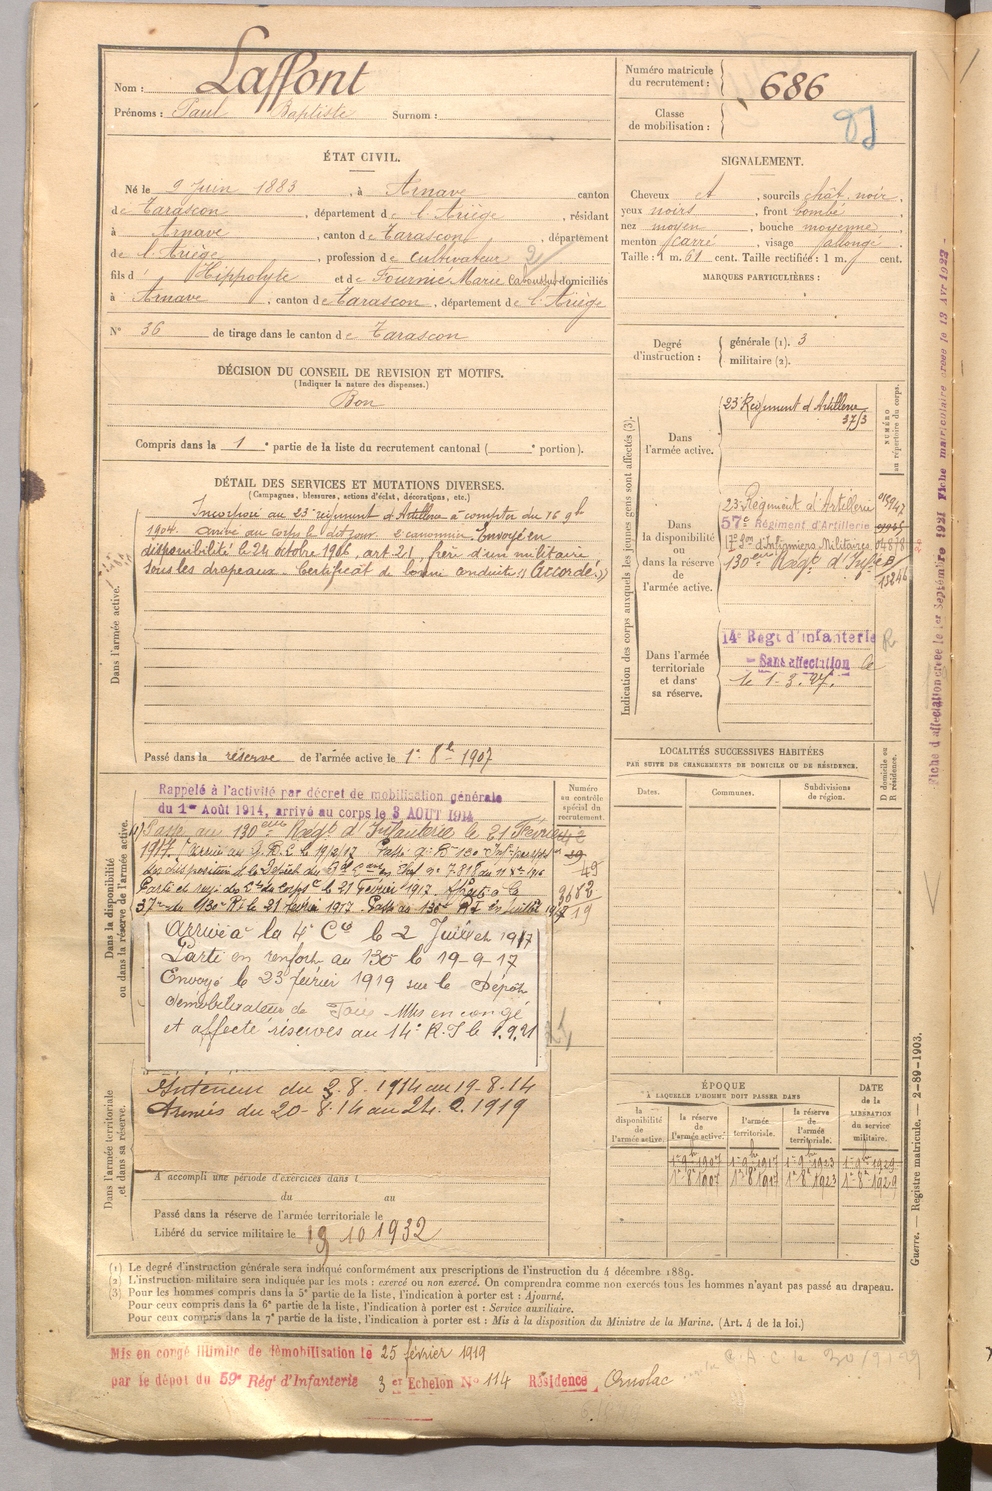 Nom : Laffont
Prénoms : Paul Baptiste Surnom :
Numéro matricule du recrutement : 686
Classe de mobilisation :
ÉTAT CIVIL.
Né le 9 Juin 1883, à Arnave canton
de Tarascon, département de l'Ariège, résidant
à Arnave, canton de Tarascon, département
de l'Ariège, profession de cultivateur
fils d' Hippolyte et de Fournié Marie domiciliés
à Arnave, canton de Tarascon, département de l'Ariège
N° 36 de tirage dans le canton de Tarascon
SIGNALEMENT.
Cheveux et, sourcils chât. noir,
yeux noirs, front bombé
nez moyen, bouche moyenne
menton carré, visage allongé
Taille : 1 m. 61 cent. Taille rectifiée : 1 m. cent.
MARQUES PARTICULIÈRES :
Degré d'instruction : générale (1). 3
militaire (2).
DÉCISION DU CONSEIL DE REVISION ET MOTIFS.
(Indiquer la nature des dispenses.)
Bon
Compris dans la 1e partie de la liste du recrutement cantonal ( e portion).
DÉTAIL DES SERVICES ET MUTATIONS DIVERSES.
(Campagnes, blessures, actions d'éclat, décorations, etc.)
Dans l'armée active.
Incorporé au 23e régiment d'Artillerie à compter du 16 9b
1904. arrivé au corps le dit jour. 2e canonnier. Envoyé en
disponibilité le 24 octobre 1906, art. 21, frère d'un militaire
sous les drapeaux. Certificat de bonne conduite : (Accordé.)
Passé dans la réserve de l'armée active le 1er 8bre 1907
Indication des corps auxquels les jeunes gens sont affectés (3).
NUMÉRO au répertoire du corps.
Dans l'armée active.
23e Régiment d'Artillerie
37/3
Dans la disponibilité ou dans la réserve de l'armée active.
23e Régiment d'Artillerie
57e Régiment d'Artillerie
17e Son d'Infirmiers Militaires
130eme Régt d'Infie
Dans l'armée territoriale et dans sa réserve.
14e Regt d'infanterie
Sans affectation
le 1-3.27.
LOCALITÉS SUCCESSIVES HABITÉES
PAR SUITE DE CHANGEMENTS DE DOMICILE OU DE RÉSIDENCE.
Dates. Communes. Subdivisions de région. D domicile ou R résidence.
Dans la disponibilité ou dans la réserve de l'armée active.
Numéro au contrôle spécial du recrutement.
Rappelé à l'activité par décret de mobilisation générale
du 1er Août 1914, arrivé au corps le 3 AOUT 1914
Passé au 130eme Régt d'Infanterie le 21 Février
1917.
Parti et rayé des Ctles du corps le 21 Fevrier 1917. Affecté à la
37e du 130e RI le 21 février 1917. Passé au 130e RI en Juillet 1917
Arrivé à la 4e Cie le 2 Juillet 1917
Parti en renfort au 130 le 19-9-17
Envoyé le 23 février 1919 sur le Dépôt
démobilisateur de Foix - Mis en congé
et affecté réserves au 14e R.I le 1.9.21
Dans l'armée territoriale et dans sa réserve.
Intérieur du 2-8-1914 au 19-8-14
Armées du 20-8-14 au 24.2.1919
A accompli une période d'exercices dans l
du au
Passé dans la réserve de l'armée territoriale le
Libéré du service militaire le 19 10 1932
ÉPOQUE
À LAQUELLE L'HOMME DOIT PASSER DANS
la disponibilité de l'armée active. la réserve de l'armée active. l'armée territoriale. la réserve de l'armée territoriale. DATE de la LIBÉRATION du service militaire.
1er 9b 1907 1er 9b 1917 1er 9b 1923 1er 9b 1929
1er 8b 1907 1er 8b 1917 1er 8b 1923 1er 8b 1929
(1) Le degré d'instruction générale sera indiqué conformément aux prescriptions de l'instruction du 4 décembre 1889.
(2) L'instruction militaire sera indiquée par les mots : exercé ou non exercé. On comprendra comme non exercés tous les hommes n'ayant pas passé au drapeau.
(3) Pour les hommes compris dans la 5e partie de la liste, l'indication à porter est : Ajourné.
Pour ceux compris dans la 6e partie de la liste, l'indication à porter est : Service auxiliaire.
Pour ceux compris dans la 7e partie de la liste, l'indication à porter est : Mis à la disposition du Ministre de la Marine. (Art. 4 de la loi.)
Mis en congé illimité de démobilisation le 25 février 1919
par le dépôt du 59e Régt d'Infanterie 3er Echelon N° 114 Résidence Ornolac
Guerre. — Registre matricule. — 2-89-1903.
Fiche d'affectation créée le 1er Septembre 1921 Fiche matriculaire créée le 13 Avr 1922